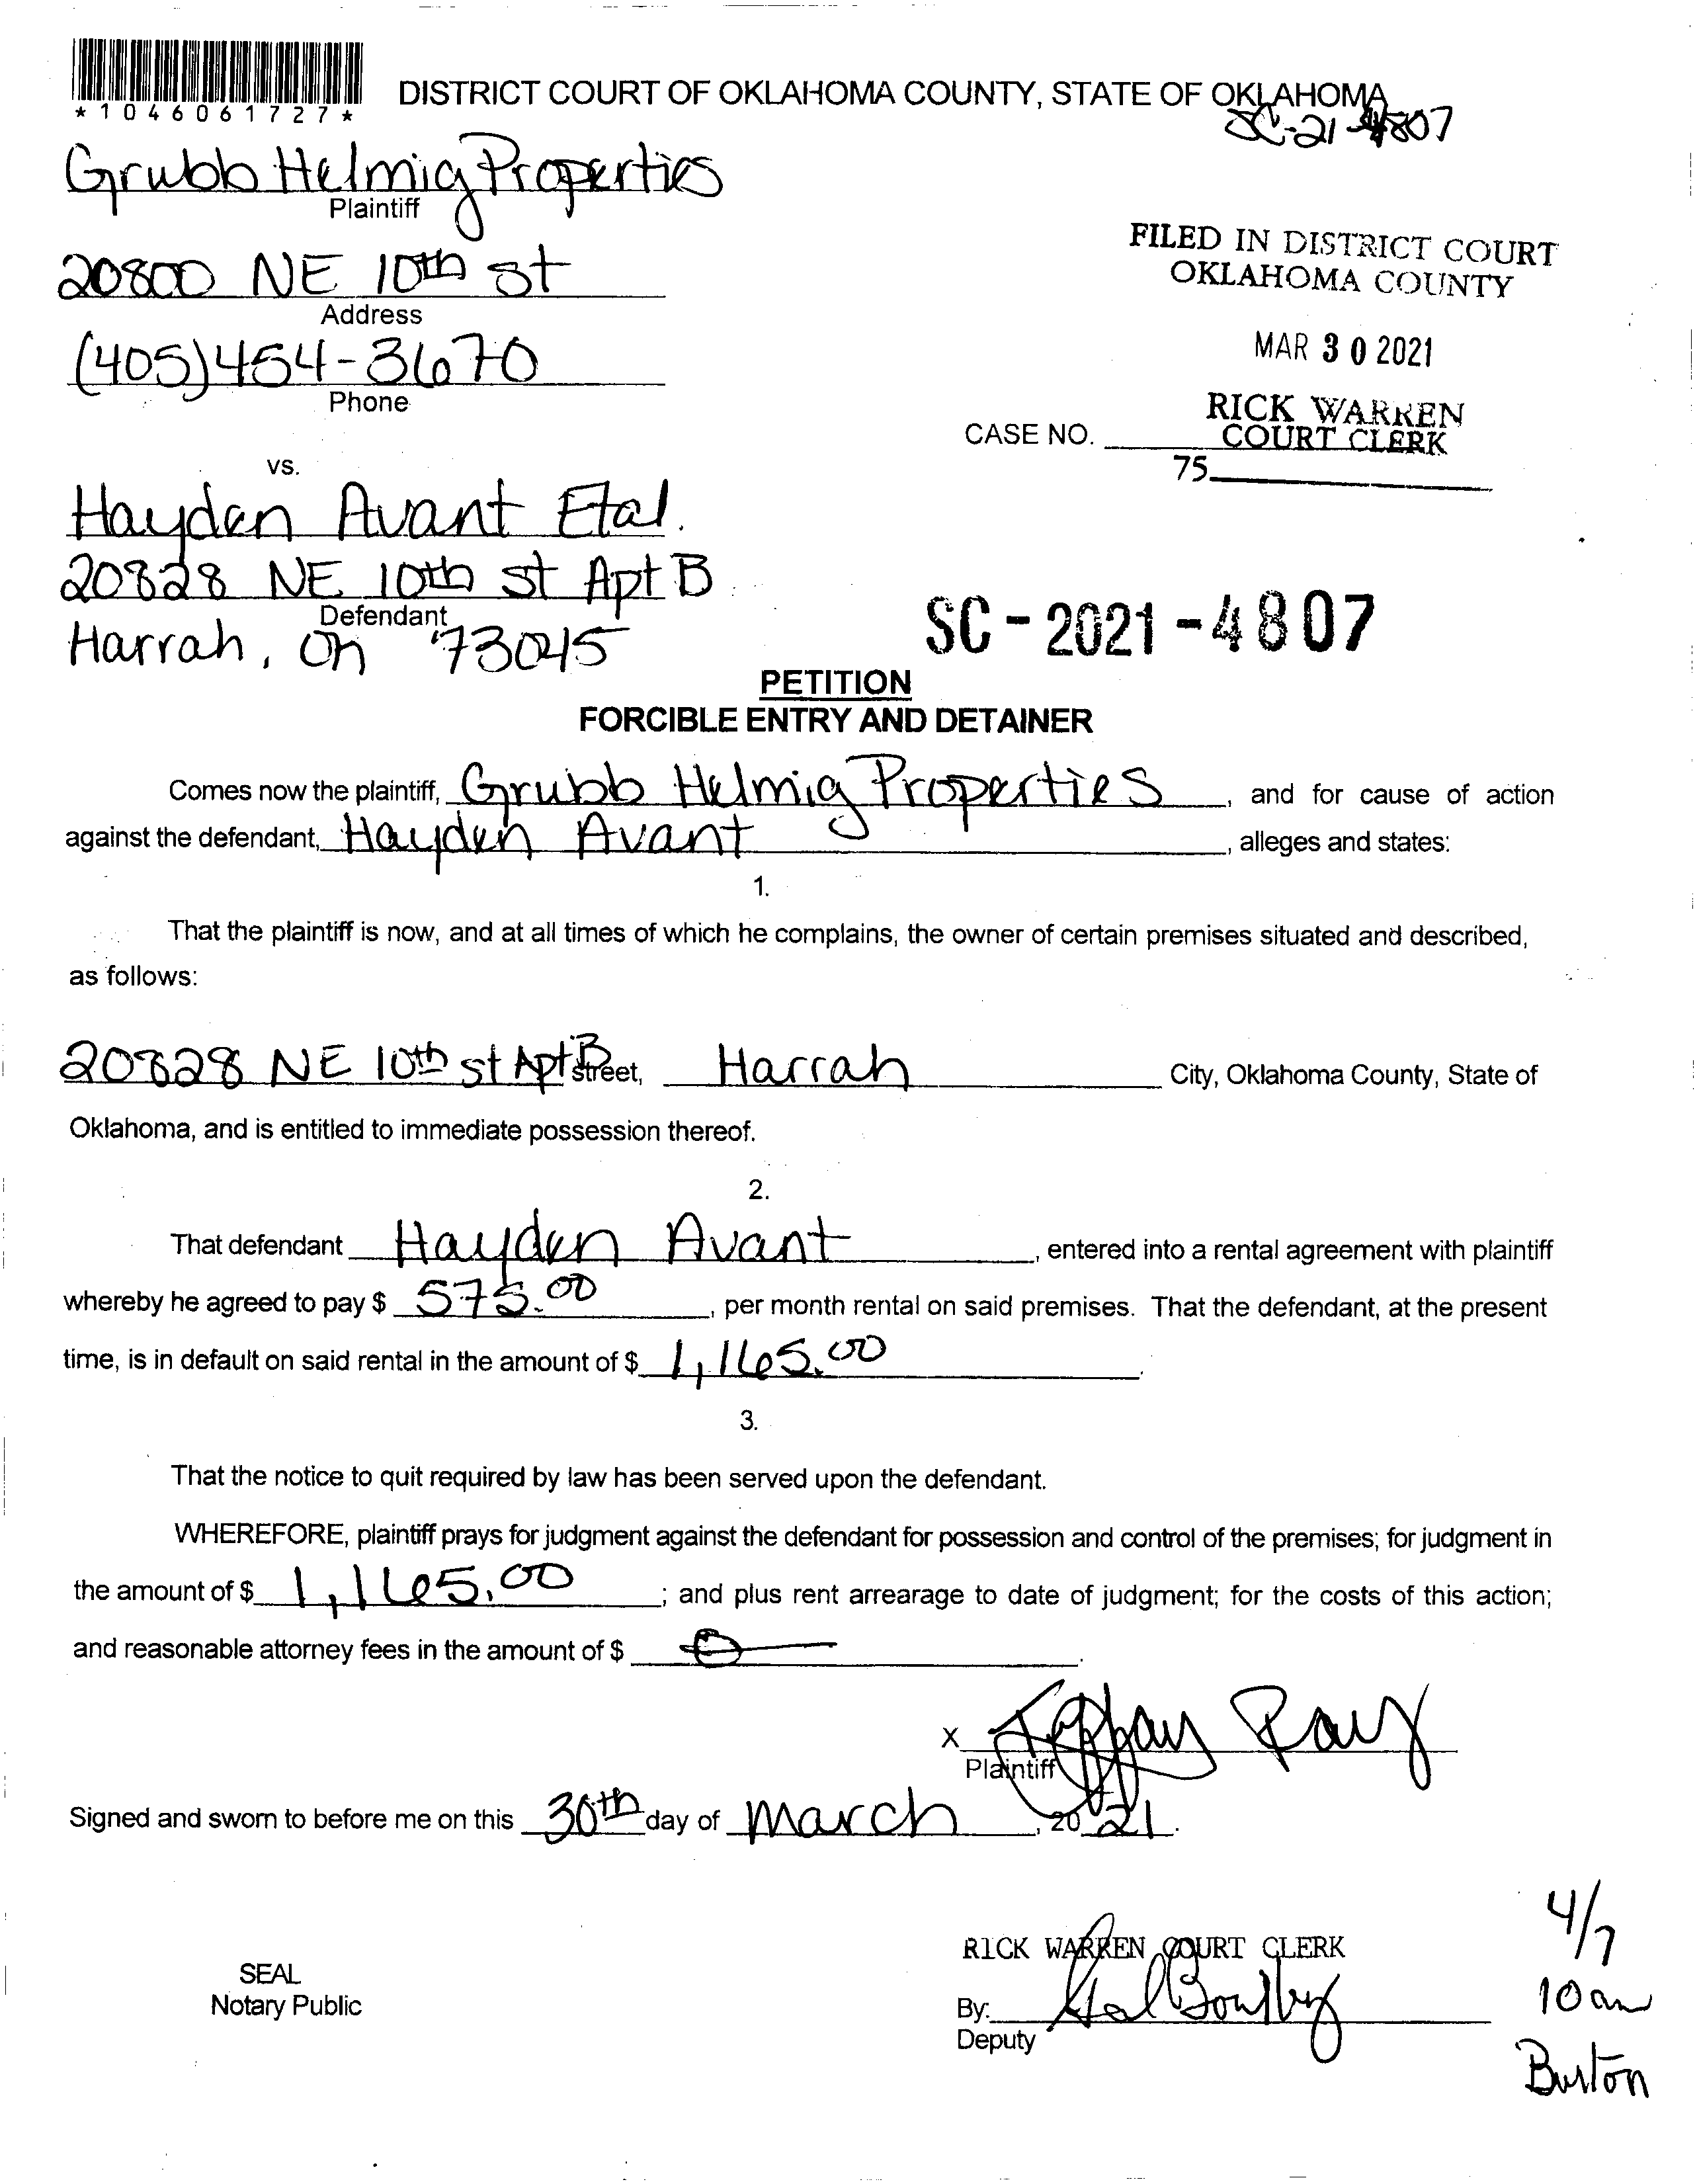 *1046061727*
DISTRICT COURT OF OKLAHOMA COUNTY, STATE OF OKLAHOMA
SC-21-4807
Grubb Helmig Properties
Plaintiff
20800 NE 10th st
Address
(405)454-3670
Phone
FILED IN DISTRICT COURT
OKLAHOMA COUNTY
MAR 30 2021
RICK WARREN
COURT CLERK
CASE NO.
75
vs.
Hayden Avant Etal.
20828 NE 10th st Apt B
Defendant
Harrah, OK 73045
SC-2021-4807
PETITION
FORCIBLE ENTRY AND DETAINER
Comes now the plaintiff, Grubb Helmig Properties, and for cause of action
against the defendant, Hayden Avant, alleges and states:
1.
That the plaintiff is now, and at all times of which he complains, the owner of certain premises situated and described,
as follows:
20828 NE 10th st Apt B street, Harrah City, Oklahoma County, State of
Oklahoma, and is entitled to immediate possession thereof.
2.
That defendant Hayden Avant, entered into a rental agreement with plaintiff
whereby he agreed to pay $ 575.00, per month rental on said premises. That the defendant, at the present
time, is in default on said rental in the amount of $ 1,165.00.
3.
That the notice to quit required by law has been served upon the defendant.
WHEREFORE, plaintiff prays for judgment against the defendant for possession and control of the premises; for judgment in
the amount of $ 1,165.00; and plus rent arrearage to date of judgment; for the costs of this action;
and reasonable attorney fees in the amount of $ 0.
X
Plaintiff
Signed and sworn to before me on this 30th day of March, 20 21.
SEAL
Notary Public
RICK WARREN COURT CLERK
By:
Deputy
4/7
10am
Burton